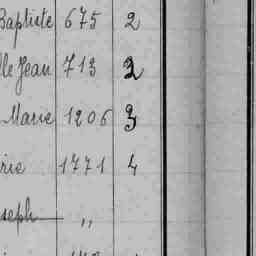 Baptiste 675 2
lle Jean 713 2
Marie 1206 3
rie 1771 4
seph „